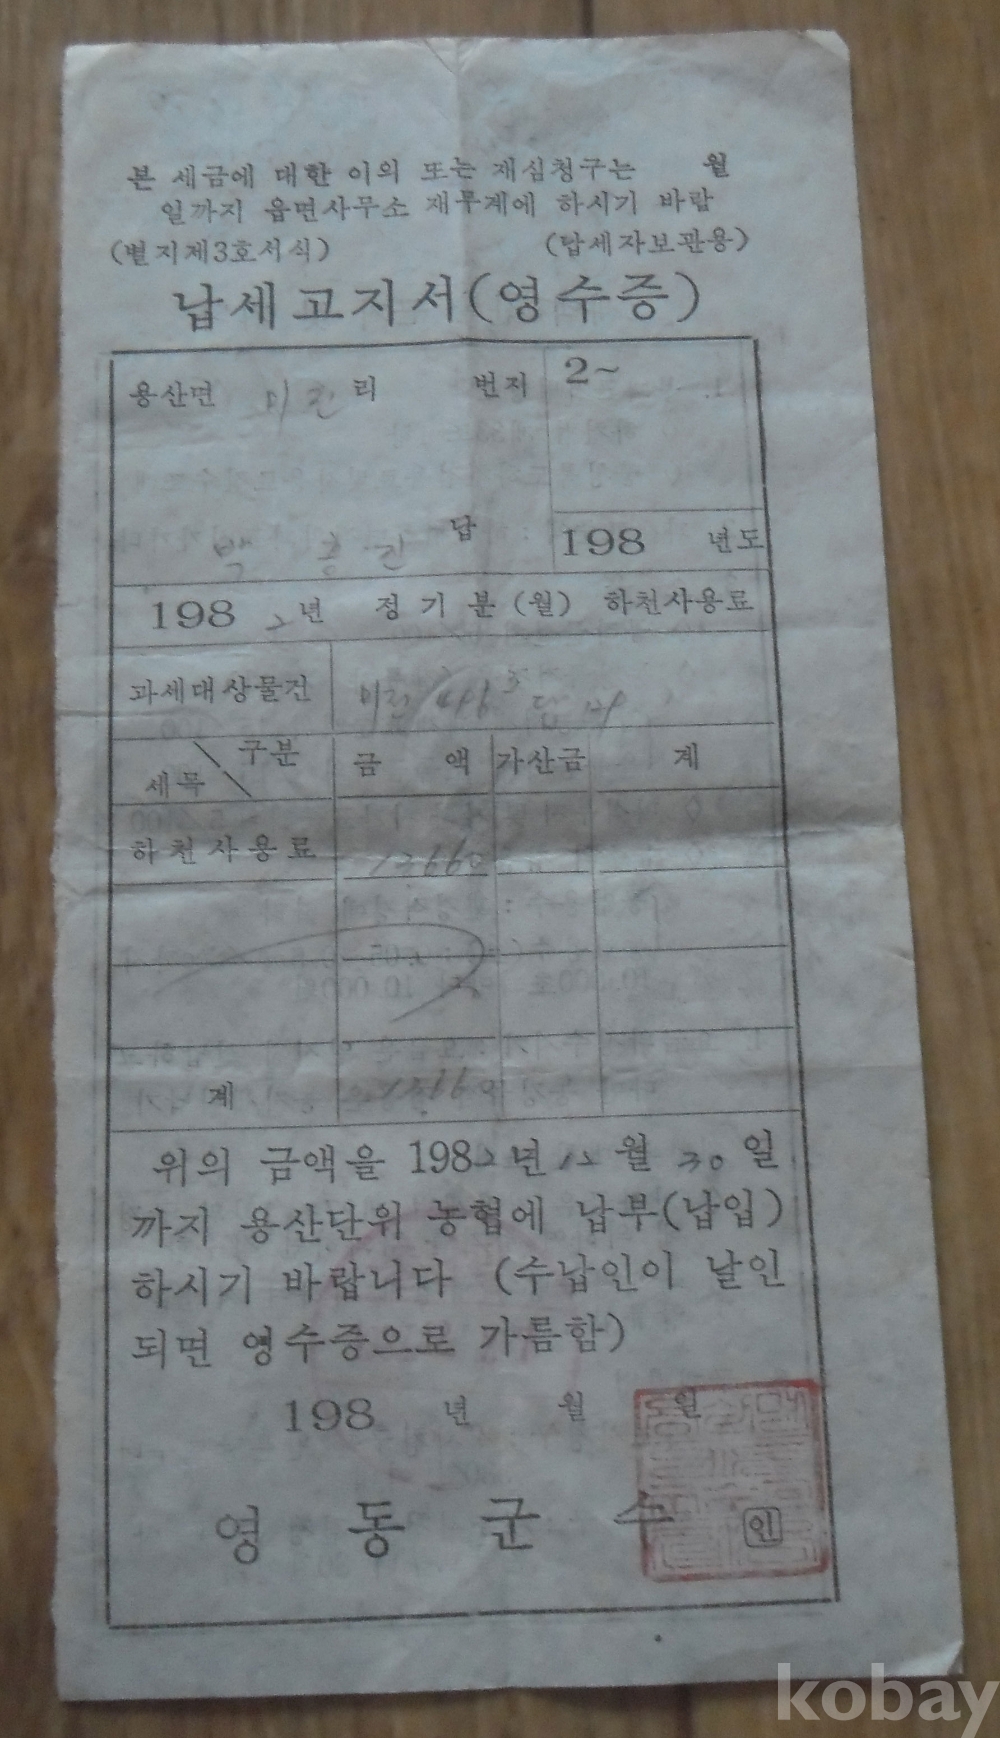 본 세금에 대한 이의 또는 재심청구는 월
일까지 읍면사무소 재무계에 하시기 바람
(별지제3호서식) (납세자보관용)
납세고지서(영수증)
용산면 미전리 번지 2~
박 홍 진 답
198 년도
1982년 정기분(월) 하천사용료
과세대상물건 미전
구분 세목 금액 가산금 계
하천사용료 12660
계 12660
위의 금액을 1982년 12월 30일
까지 용산단위 농협에 납부(납입)
하시기 바랍니다 (수납인이 날인
되면 영수증으로 가름함)
198 년 월 일
영동군수 인
kobay